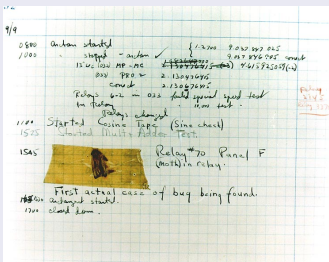 9/9
0800 antan started { 1.2700 9.037 847 025
1000 " stopped - antan ✓ 9.037 846 795 correct
13" uc (032) MP-MC 2.130476415 4.615925059(-2)
033 PRO 2 2.130476415
correct 2.130676415
Relays 6-2 in 033 failed special speed test
in Relay " 11.00 test.
Relays changed
1100 Started Cosine Tape (Sine check)
1525 Started Multi Adder Test.
1545 Relay #70 Panel F
(Moth) in relay.
First actual case of bug being found.
1630 antangent started.
1700 closed down.
Relay